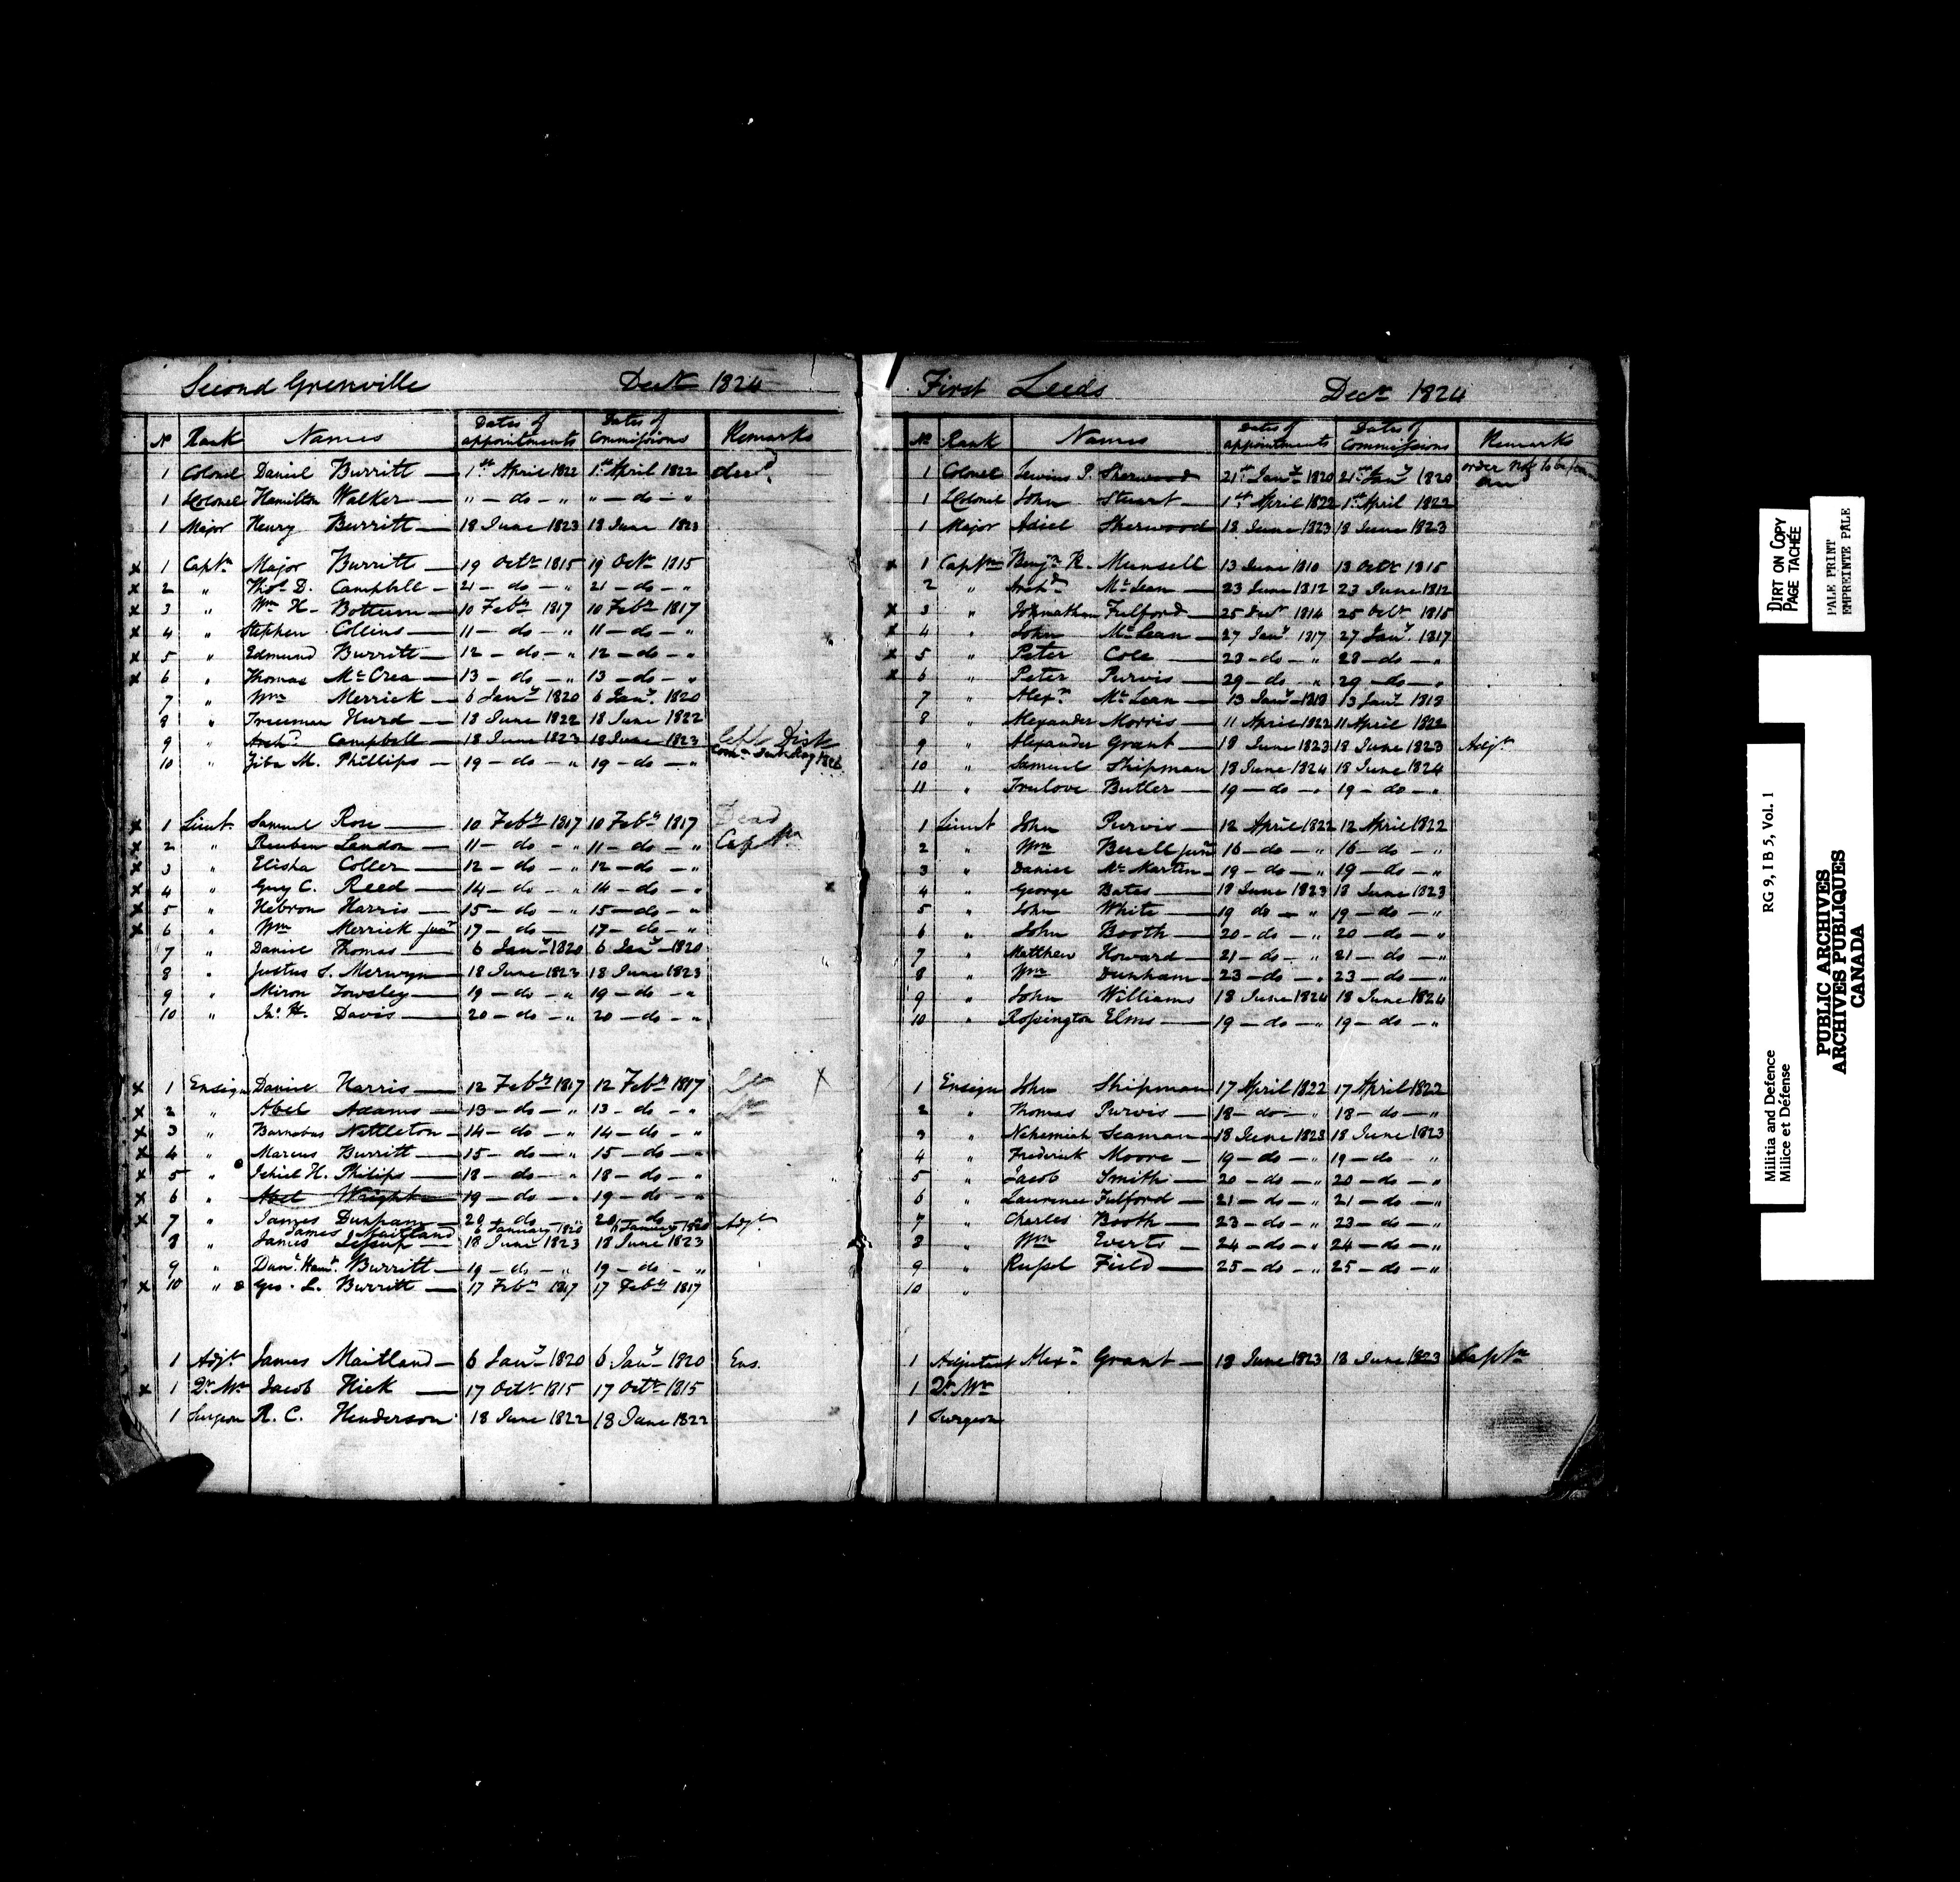 Second Grenville Decr 1824
No Rank Names Dates of appointments Dates of Commissions Remarks
1 Colonel Daniel Burritt — 1st April 1822 1st April 1822 decd.
1 LColonel Hamilton Walker — " — do — " " — do — "
1 Major Henry Burritt — 18 June 1823 18 June 1823
x 1 Captn Major Burritt — 19 Octr 1815 19 Octr 1815
x 2 " Thos D. Campbell — 21 — do — " 21 — do — "
x 3 " Wm H. Bottum — 10 Feby 1817 10 Feby 1817
x 4 " Stephen Collins — 11 — do — " 11 — do — "
x 5 " Edmund Burritt — 12 — do — " 12 — do — "
x 6 " Thomas McCrea — 13 — do — " 13 — do — "
7 " Wm Merrick — 6 Jany 1820 6 Jany 1820
8 " Freeman Hurd — 18 June 1822 18 June 1822
9 " Archd Campbell — 18 June 1823 18 June 1823 Left Dist
10 " Ziba M. Phillips — 19 — do — " 19 — do — "
x 1 Lieut. Samuel Rose — 10 Feby 1817 10 Feby 1817 Dead
x 2 " Reuben Landon — 11 — do — " 11 — do — " Captn
x 3 " Elisha Coller — 12 — do — " 12 — do — "
x 4 " Guy C. Reed — 14 — do — " 14 — do — "
x 5 " Hebron Harris — 15 — do — " 15 — do — "
x 6 " Wm Merrick junr 17 — do — 17 — do — "
7 " Daniel Thomas — 6 Jany 1820 6 Jany 1820
8 " Justus S. Merwyn — 18 June 1823 18 June 1823
9 " Miron Towsley — 19 — do — " 19 — do — "
10 " Jn. H. Davis — 20 — do — " 20 — do — "
x 1 Ensign Daniel Harris — 12 Feby 1817 12 Feby 1817 Lt x
x 2 " Abel Adams — 13 — do — " 13 — do — " Lt
x 3 " Barnabas Nettleton — 14 — do — " 14 — do — "
x 4 " Marcus Burritt — 15 — do — " 15 — do — "
x 5 " Jehiel H. Philips — 18 — do — " 18 — do — "
x 6 " Abel Wright — 19 — do — " 19 — do — "
x 7 " James Dunham — 20 do " 20 do "
James Maitland 6 January 1820 6 January 1820 Adjt
8 " James Jessup — 18 June 1823 18 June 1823
9 " Danl Hamn Burritt — 19 — do — " 19 — do — "
x 10 " Geo. L. Burritt — 17 Feby 1817 17 Feby 1817
1 Adjt James Maitland — 6 Jany 1820 6 Jany 1820 Ens.
x 1 Qr Mr Jacob Hick — 17 Octr 1815 17 Octr 1815
1 Surgeon R. C. Henderson 18 June 1822 18 June 1822
First Leeds Decr 1824
No Rank Names Dates of appointments Dates of Commissions Remarks
1 Colonel Levius P. Sherwood 21st Jany 1820 21st Jany 1820 order not to be
1 LColonel John Stuart — 1st April 1822 1st April 1822
1 Major Adiel Sherwood 18 June 1823 18 June 1823
x 1 Captn Benjn R. Munsell 13 June 1810 13 Octr 1815
2 " Archd McLean — 23 June 1812 23 June 1812
x 3 " Johnathan Fulford — 25 Decr 1814 25 Octr 1815
x 4 " John McLean — 27 Jany 1817 27 Jany 1817
x 5 " Peter Cole — 28 — do — " 28 — do — "
x 6 " Peter Purvis — 29 — do — " 29 — do — "
7 " Alexr McLean — 13 Jany 1819 13 Jany 1819
8 " Alexander Morris — 11 April 1822 11 April 1822
9 " Alexander Grant — 18 June 1823 18 June 1823 Adjt
10 " Samuel Shipman 18 June 1824 18 June 1824
11 " Truelove Butler — 19 — do — " 19 — do — "
1 Lieut John Purvis — 12 April 1822 12 April 1822
2 " Wm Buell junr 16 — do — " 16 — do — "
3 " Daniel McMartin — 19 — do — " 19 — do — "
4 " George Bates — 18 June 1823 18 June 1823
5 " John White — 19 do — " 19 — do — "
6 " John Booth — 20 — do — " 20 — do — "
7 " Matthew Howard — 21 — do — " 21 — do — "
8 " Wm Dunham — 23 — do — " 23 — do — "
9 " John Williams 18 June 1824 18 June 1824
10 " Rossington Elms — 19 — do — " 19 — do — "
1 Ensign John Shipman 17 April 1822 17 April 1822
2 " Thomas Purvis — 18 — do — " 18 — do — "
3 " Nehemiah Seaman — 18 June 1823 18 June 1823
4 " Frederick Moore — 19 — do — " 19 — do — "
5 " Jacob Smith — 20 — do — " 20 — do — "
6 " Lawrence Fulford — 21 — do — " 21 — do — "
7 " Charles Booth — 23 — do — " 23 — do — "
8 " Wm Everts — 24 — do — " 24 — do — "
9 " Russel Field — 25 — do — " 25 — do — "
10 "
1 Adjutant Alexr Grant — 18 June 1823 18 June 1823 Captn
1 Qr Mr
1 Surgeon
DIRT ON COPY
PAGE TACHÉE
PALE PRINT
EMPREINTE PALE
Militia and Defence RG 9, I B 5, Vol. 1
Milice et Défense
PUBLIC ARCHIVES
ARCHIVES PUBLIQUES
CANADA